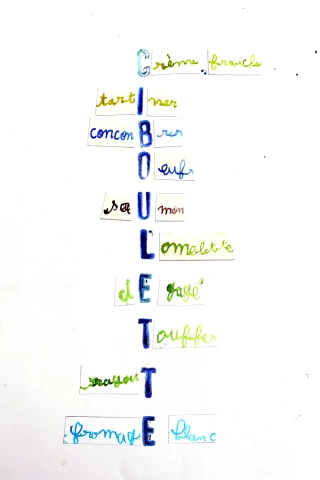 Crème fraiche
tartIner
conconBres
Oeufs
saUmon
Lomelette
dE
Touffes
T
fromagE blanc